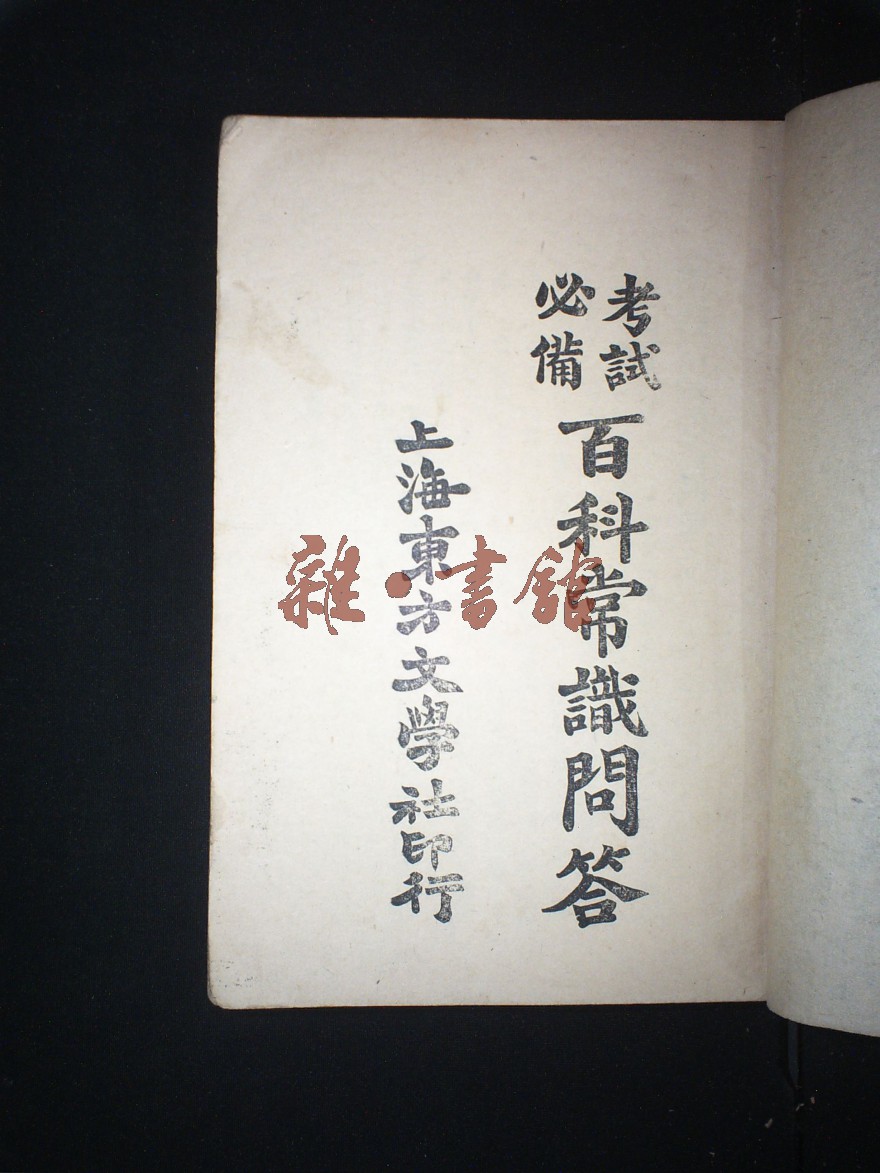 考試
必備
百科常識問答
上海東方文學社印行
雜·書館